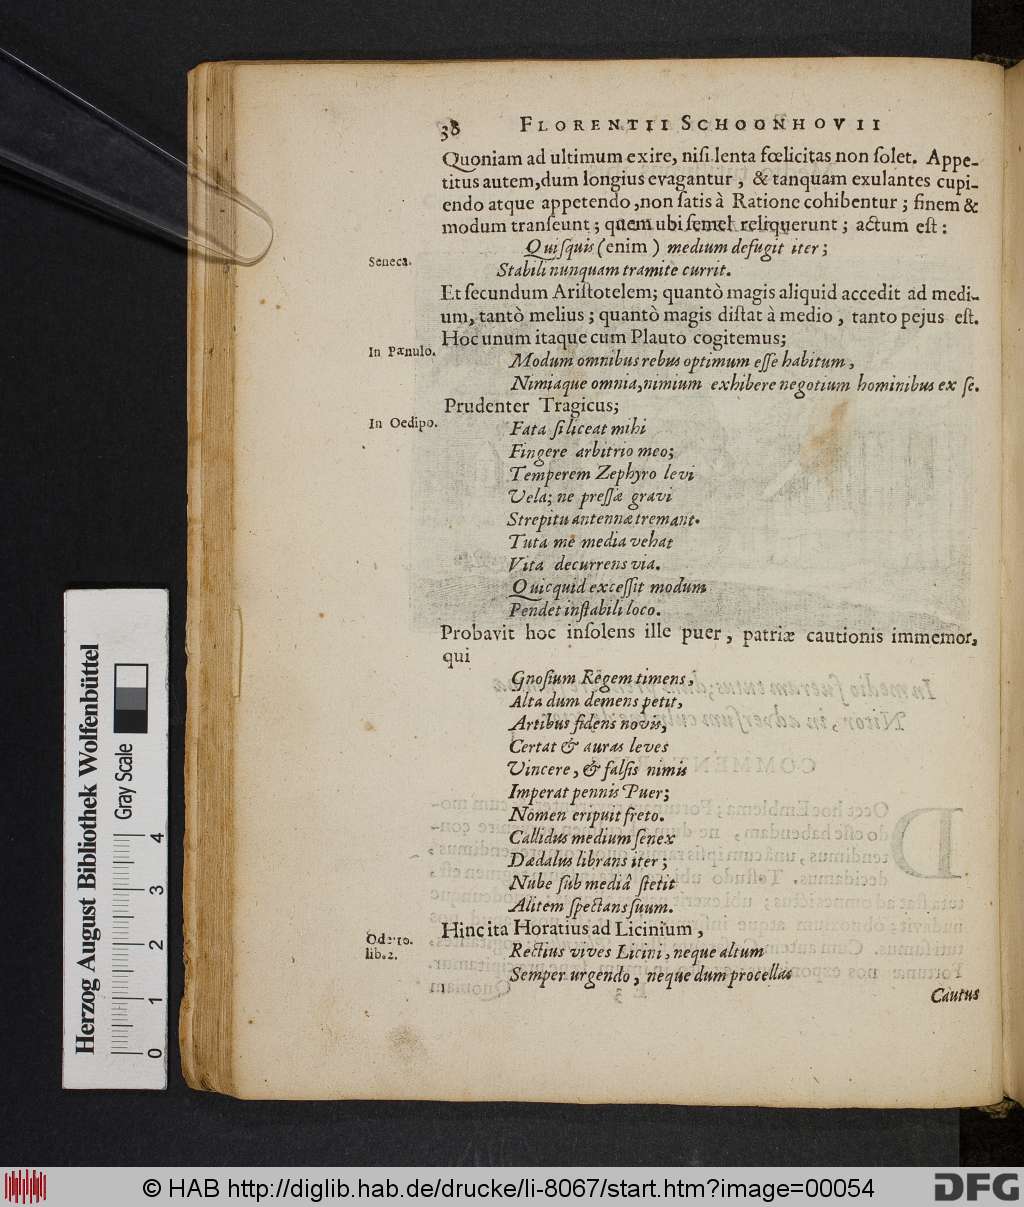 38 FLORENTII SCHOONHOVII
Quoniam ad ultimum exire, niſi lenta fœlicitas non ſolet. Appe-
titus autem, dum longius evagantur, & tanquam exulantes cupi-
endo atque appetendo, non ſatis à Ratione cohibentur; finem &
modum tranſeunt; quem ubi ſemel reliquerunt; actum eſt:
Quiſquis (enim) medium defugit iter;
Seneca.
Stabili nunquam tramite currit.
Et ſecundum Ariſtotelem; quantò magis aliquid accedit ad medi-
um, tantò melius; quantò magis diſtat à medio, tanto pejus eſt.
Hoc unum itaque cum Plauto cogitemus;
In Pænulo.
Modum omnibus rebus optimum eſſe habitum,
Nimiaque omnia, nimium exhibere negotium hominibus ex ſe.
Prudenter Tragicus;
In Oedipo.
Fata ſi liceat mihi
Fingere arbitrio meo;
Temperem Zephyro levi
Vela; ne preſſæ gravi
Strepitu antennæ tremant.
Tuta me media vehat
Vita decurrens via.
Quicquid exceſſit modum
Pendet inſtabili loco.
Probavit hoc inſolens ille puer, patriæ cautionis immemor,
qui
Gnoſium Regem timens,
Alta dum demens petit,
Artibus fidens novis,
Certat & auras leves
Vincere, & falſis nimis
Imperat pennis Puer;
Nomen eripuit freto.
Callidus medium ſenex
Dædalus librans iter;
Nube ſub mediâ ſtetit
Alitem ſpectans ſuum.
Hinc ita Horatius ad Licinium,
Ode 10.
lib. 2.
Rectius vives Licini, neque altum
Semper urgendo, neque dum procellas
Cautus
Herzog August Bibliothek Wolfenbüttel
Gray Scale
0 1 2 3 4
© HAB http://diglib.hab.de/drucke/li-8067/start.htm?image=00054
DFG